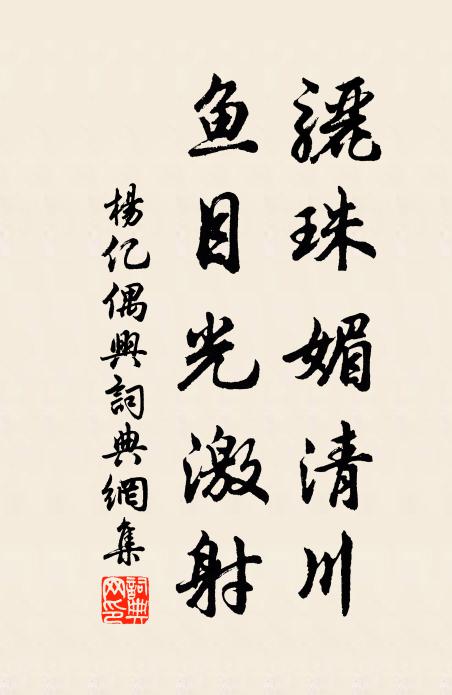 驪珠媚清川
鱼目光激射
楊亿偶興詞典網集
詞典网印